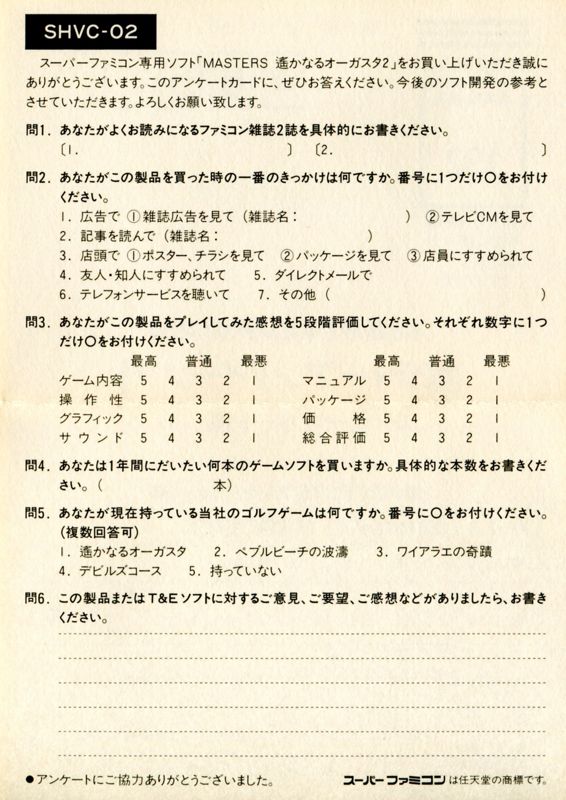 SHVC-02
スーパーファミコン専用ソフト「MASTERS 遙かなるオーガスタ2」をお買い上げいただき誠に
ありがとうございます。このアンケートカードに、ぜひお答えください。今後のソフト開発の参考と
させていただきます。よろしくお願い致します。
問1. あなたがよくお読みになるファミコン雑誌2誌を具体的にお書きください。
〔1. 〕 〔2. 〕
問2. あなたがこの製品を買った時の一番のきっかけは何ですか。番号に1つだけ○をお付け
ください。
1. 広告で ①雑誌広告を見て（雑誌名： ） ②テレビCMを見て
2. 記事を読んで（雑誌名： ）
3. 店頭で ①ポスター、チラシを見て ②パッケージを見て ③店員にすすめられて
4. 友人・知人にすすめられて 5. ダイレクトメールで
6. テレフォンサービスを聴いて 7. その他（ ）
問3. あなたがこの製品をプレイしてみた感想を5段階評価してください。それぞれ数字に1つ
だけ○をお付けください。
最高 普通 最悪 最高 普通 最悪
ゲーム内容 5 4 3 2 1 マニュアル 5 4 3 2 1
操作性 5 4 3 2 1 パッケージ 5 4 3 2 1
グラフィック 5 4 3 2 1 価格 5 4 3 2 1
サウンド 5 4 3 2 1 総合評価 5 4 3 2 1
問4. あなたは1年間にだいたい何本のゲームソフトを買いますか。具体的な本数をお書きくだ
さい。（ 本）
問5. あなたが現在持っている当社のゴルフゲームは何ですか。番号に○をお付けください。
（複数回答可）
1. 遙かなるオーガスタ 2. ペブルビーチの波濤 3. ワイアラエの奇蹟
4. デビルズコース 5. 持っていない
問6. この製品またはT&Eソフトに対するご意見、ご要望、ご感想などがありましたら、お書き
ください。
●アンケートにご協力ありがとうございました。 スーパーファミコンは任天堂の商標です。